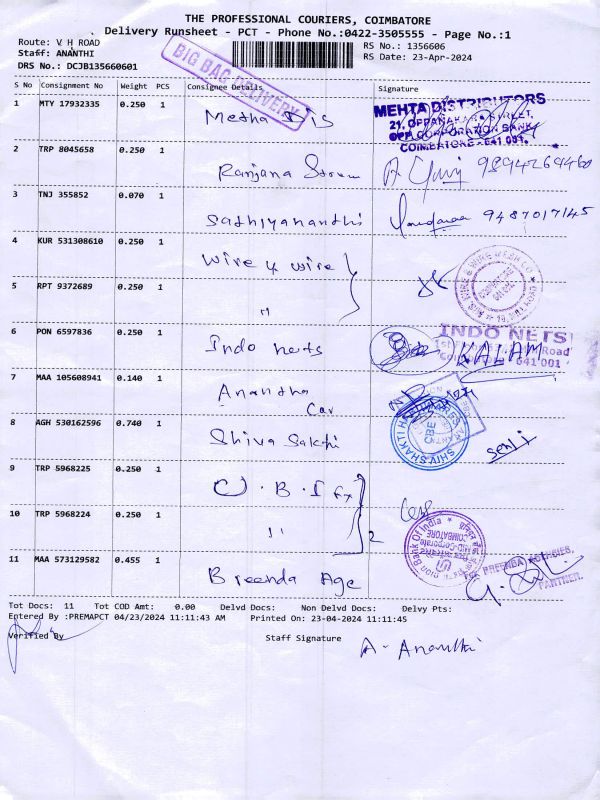 THE PROFESSIONAL COURIERS, COIMBATORE
Delivery Runsheet - PCT - Phone No.:0422-3505555 - Page No.:1
Route: V H ROAD
RS No.: 1356606
Staff: ANANTHI
RS Date: 23-Apr-2024
DRS No.: DCJB135660601
BIG BAG DELIVERY
S No Consignment No Weight PCS Consignee Details Signature
1 MTY 17932335 0.250 1 Metha Dis
MEHTA DISTRIBUTORS
21, OPPANAKARA STREET,
OPP. CORPORATION BANK,
COIMBATORE - 641 001.
2 TRP 8045658 0.250 1 Ranjana Storum 9894269460
3 TNJ 355852 0.070 1 Sathiyananthi 9487017145
4 KUR 531308610 0.250 1 Wire & wire
5 RPT 9372689 0.250 1 "
6 PON 6597836 0.250 1 Indo nets KALAM
INDO NETS
COIMBATORE - 641 001
7 MAA 105608941 0.140 1 Anandha Car
8 AGH 530162596 0.740 1 Shiva Sakthi
SHIV SHAKTI
CBE
9 TRP 5968225 0.250 1 C . B . I Ex
10 TRP 5968224 0.250 1 " 2
Bank Of India
COIMBATORE
11 MAA 573129582 0.455 1 Breenda Age
For PREENDA AGENCIES,
PARTNER.
Tot Docs: 11 Tot COD Amt: 0.00 Delvd Docs: Non Delvd Docs: Delvy Pts:
Entered By :PREMAPCT 04/23/2024 11:11:43 AM Printed On: 23-04-2024 11:11:45
Verified By Staff Signature A. Ananthi